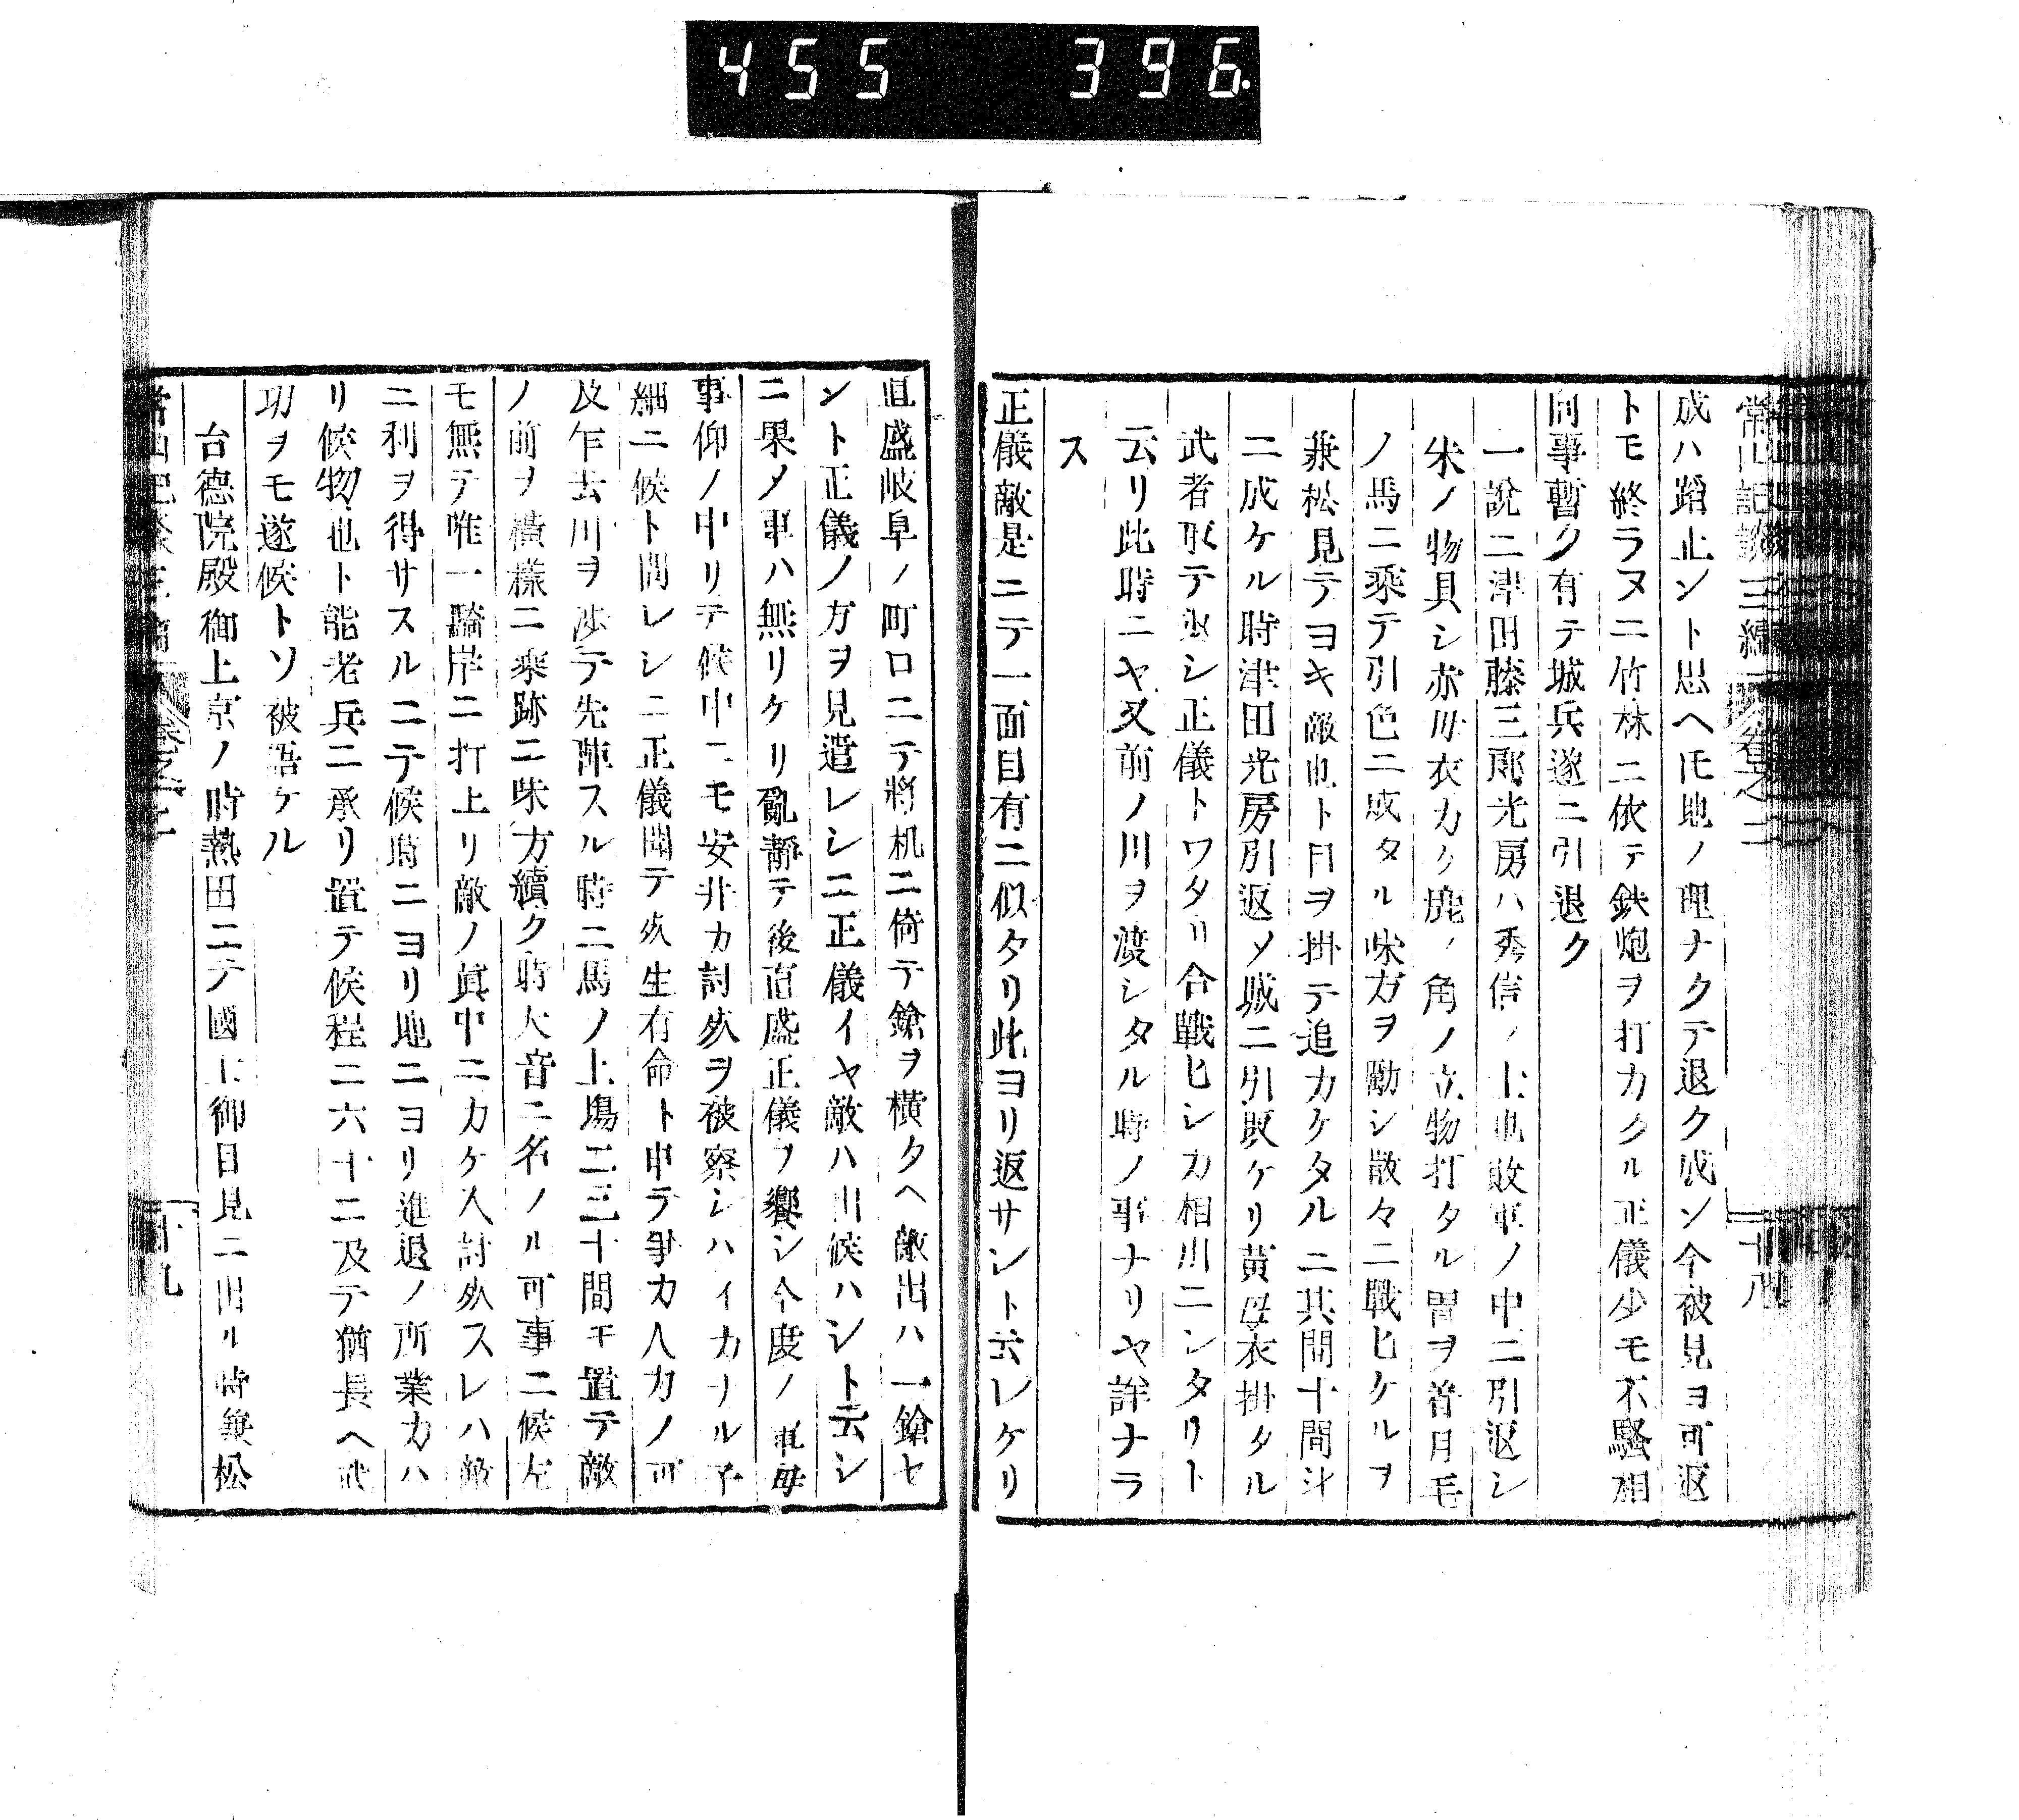 455 396.
常山記談三編 卷之二 十八
成ハ踏止ント思ヘ𪜈地ノ理ナクテ退ク成ン今被見ヨ可返
トモ終ラヌニ竹林ニ依テ鉄炮ヲ打カクル正儀少モ不騒相
向事暫ク有テ城兵遂ニ引退ク
一說ニ津田藤三郎光房ハ秀信ノ士也敗軍ノ中ニ引返シ
朱ノ物具シ赤母衣カケ鹿ノ角ノ立物打タル冑ヲ着月毛
ノ馬ニ乘テ引色ニ成タル味方ヲ勵シ散々ニ戰ヒケルヲ
兼松見テヨキ敵也ト目ヲ掛テ追カケタルニ其間十間斗
ニ成ケル時津田光房引返メ城ニ引取ケリ黃母衣掛タル
武者取テ返シ正儀トワタリ合戰ヒシカ相引ニシタリト
云リ此時ニヤ又前ノ川ヲ渡シタル時ノ事ナリヤ詳ナラ
ス
正儀敵是ニテ一面目有ニ似タリ此ヨリ返サント云レケリ
直盛岐阜ノ町口ニテ將机ニ倚テ鎗ヲ橫タヘ敵出ハ一鎗セ
ント正儀ノ方ヲ見遣レシニ正儀イヤ敵ハ出候ハシト云シ
ニ果メ事ハ無リケリ亂靜テ後直盛正儀ヲ饗シ今度ノ軍每
事仰ノ中リテ候中ニモ安非カ討死ヲ被察シハイカナル子
細ニ候ト問レシニ正儀聞テ死生有命ト申テ爭カ人カノ可
及乍去川ヲ渉テ先陣スル時ニ馬ノ上場二三十間モ置テ敵
ノ前ヲ橫樣ニ乘跡ニ味方續ク時大音ニ名ノル可事ニ候左
モ無テ唯一騎岸ニ打上リ敵ノ眞中ニカケ入討死スレハ敵
ニ利ヲ得サスルニテ候時ニヨリ地ニヨリ進退ノ所業カハ
リ候物也ト能老兵ニ承リ置テ候程ニ六十二及テ猶長ヘ武
功ヲモ遂候トソ被語ケル
台德院殿御上京ノ時熱田ニテ國士御目見ニ出ル時兼松
常山紀談三編 卷之二 十九